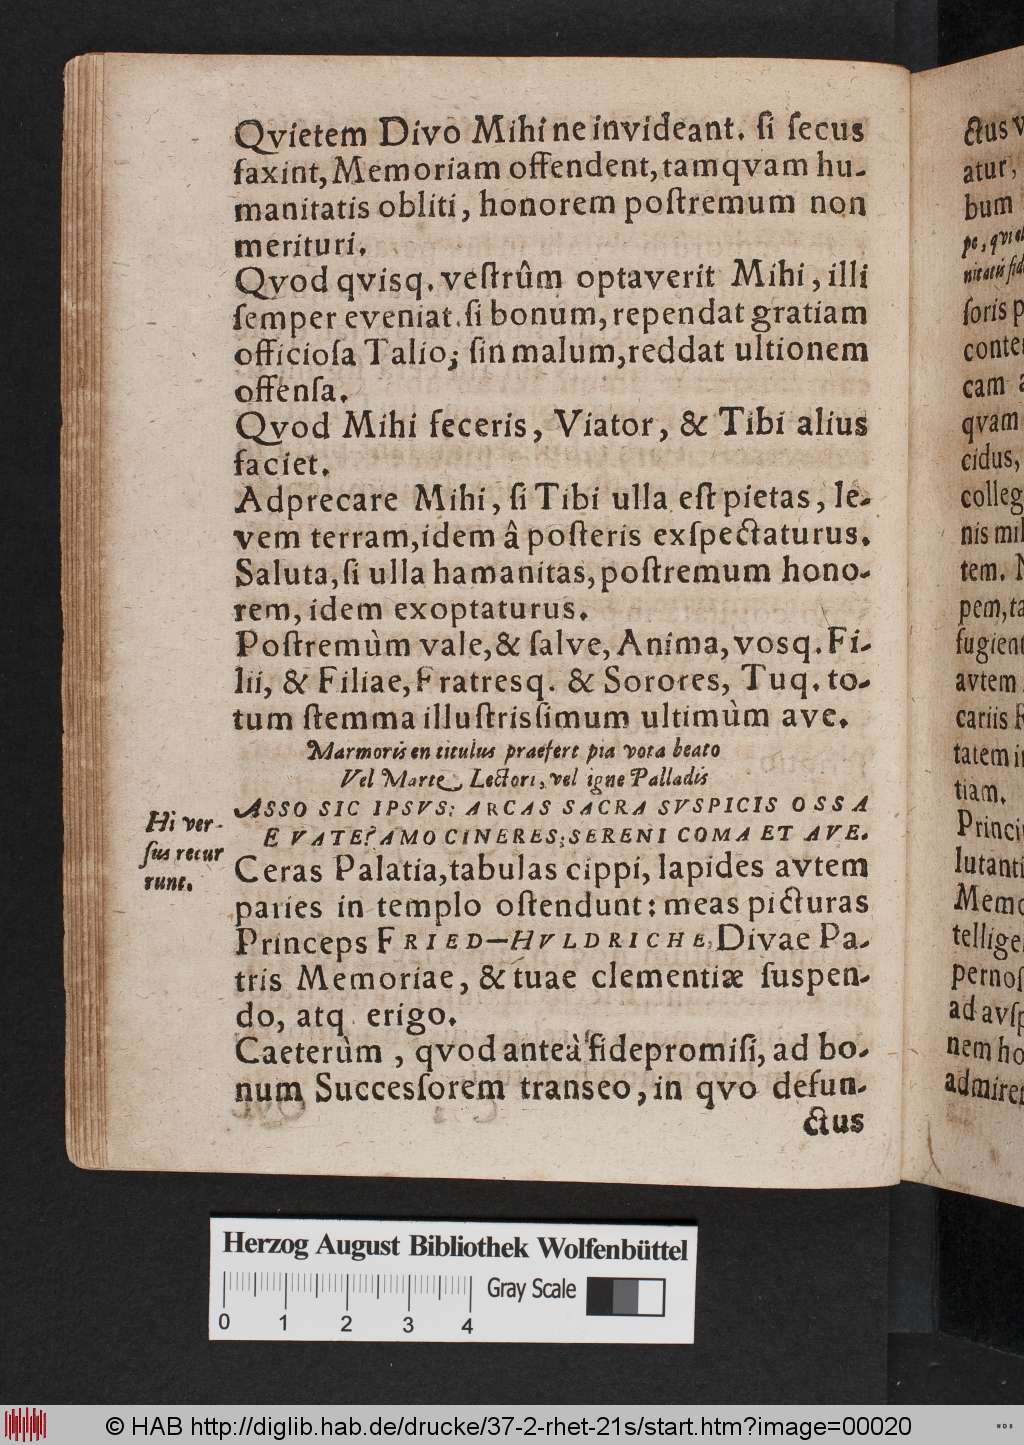 Qvietem Divo Mihi ne invideant. ſi ſecus
faxint, Memoriam offendent, tamqvam hu-
manitatis obliti, honorem poſtremum non
merituri.
Qvod qvisq. veſtrûm optaverit Mihi, illi
ſemper eveniat. ſi bonum, rependat gratiam
officioſa Talio; ſin malum, reddat ultionem
offenſa.
Qvod Mihi feceris, Viator, & Tibi alius
faciet.
Adprecare Mihi, ſi Tibi ulla eſt pietas, le-
vem terram, idem â poſteris exſpectaturus.
Saluta, ſi ulla hamanitas, poſtremum hono-
rem, idem exoptaturus.
Poſtremùm vale, & ſalve, Anima, vosq. Fi-
lii, & Filiae, Fratresq. & Sorores, Tuq. to-
tum ſtemma illuſtrisſimum ultimùm ave.
Marmoris en titulus praefert pia vota beato
Vel Marte, Lectori, vel igne Palladis
ASSO SIC IPSVS: ARCAS SACRA SVSPICIS OSSA
E VATE? AMO CINERES; SERENI COMA ET AVE.
Hi ver-
ſus recur
runt.
Ceras Palatia, tabulas cippi, lapides avtem
paries in templo oſtendunt: meas picturas
Princeps FRIED-HVLDRICHE, Divae Pa-
tris Memoriae, & tuae clementiæ ſuspen-
do, atq erigo.
Caeterùm, qvod anteà fidepromiſi, ad bo-
num Succesſorem transeo, in qvo defun-
ctus
ctus
atur,
bum
pe, qvi
nitatis
ſoris p
conte
cam
qvam
cidus,
colleg
nis mil
tem.
pem, ta
fugient
avtem
cariis
tatem in
tiam.
Princi
lutanti
Memo
tellige
pernoſ
ad avſp
nem ho
admire
Herzog August Bibliothek Wolfenbüttel
Gray Scale
0 1 2 3 4
© HAB http://diglib.hab.de/drucke/37-2-rhet-21s/start.htm?image=00020